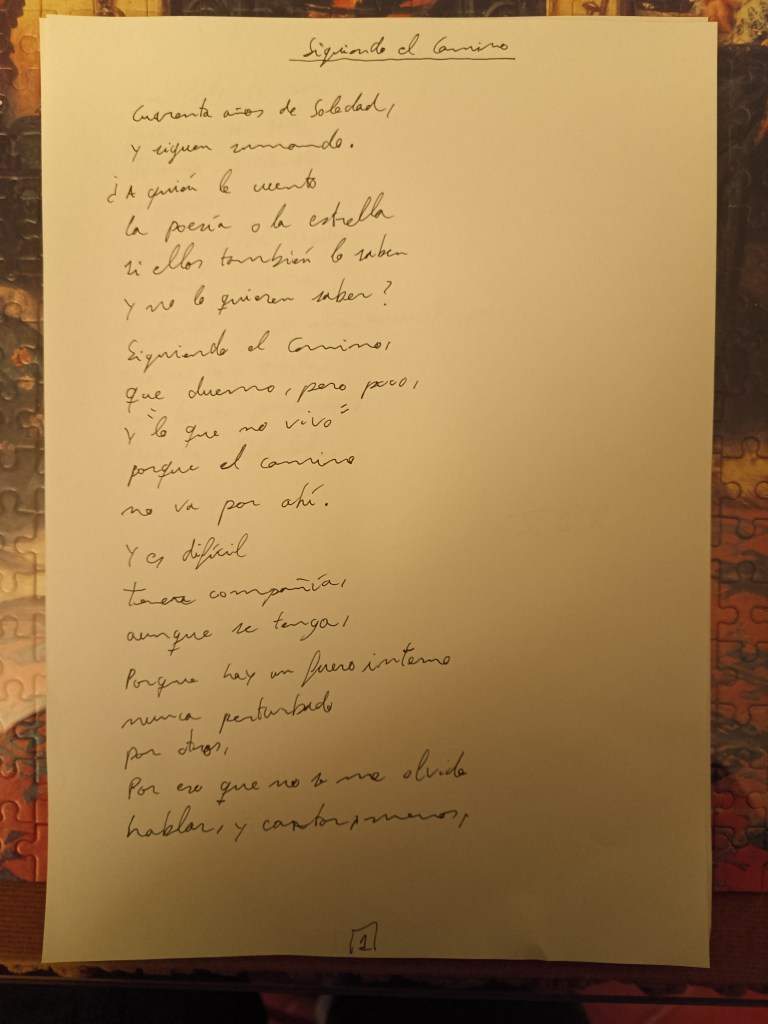 Siguiendo el Camino
Cuarenta años de Soledad,
Y siguen sumando.
¿A quién le cuento
la poesía o la estrella
si ellos también lo saben
Y no lo quieren saber?
Siguiendo el Camino,
que duermo, pero poco,
Y "lo que no vivo"
porque el camino
no va por ahí.
Y es difícil
tener compañía,
aunque se tenga,
Porque hay un fuero interno
nunca perturbado
por otros,
Por eso que no se me olvide
hablar, y cantar, menos,
1